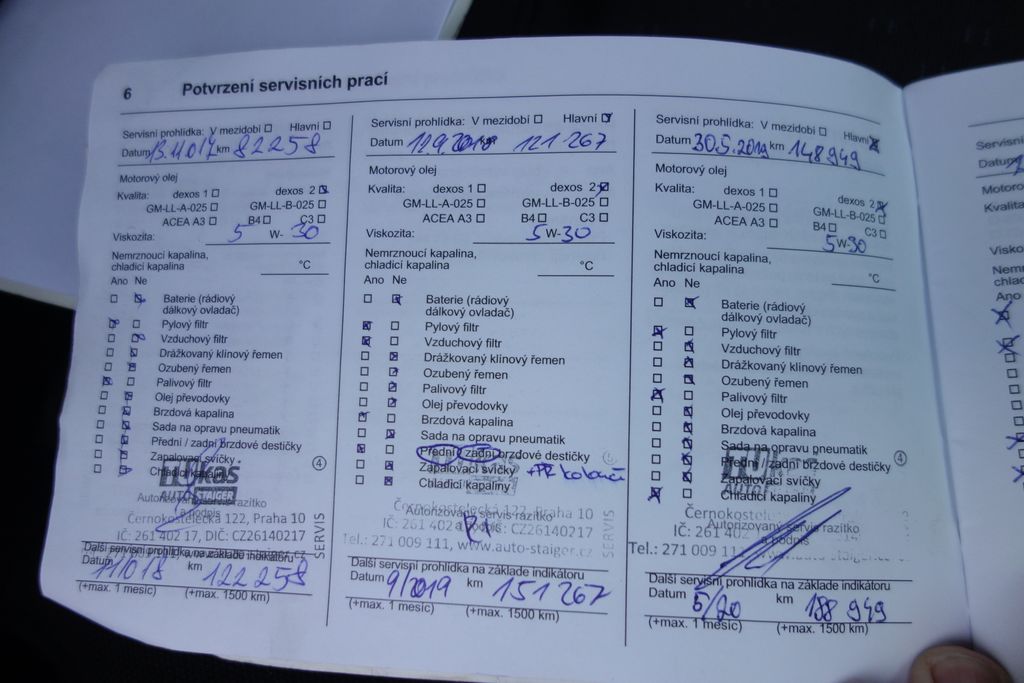 6 Potvrzení servisních prací
Servisní prohlídka: V mezidobí Hlavní
Datum 13.11.017 km 82258
Motorový olej
Kvalita: dexos 1 dexos 2
GM-LL-A-025 GM-LL-B-025
ACEA A3 B4 C3
Viskozita: 5 W- 30
Nemrznoucí kapalina,
chladicí kapalina °C
Ano Ne
Baterie (rádiový
dálkový ovladač)
Pylový filtr
Vzduchový filtr
Drážkovaný klínový řemen
Ozubený řemen
Palivový filtr
Olej převodovky
Brzdová kapalina
Sada na opravu pneumatik
Přední / zadní brzdové destičky
Zapalovací svíčky
Chladicí kapaliny
4
AUTO STAIGER
Autorizovaný servis razítko
a podpis
Černokostelecká 122, Praha 10
IČ: 261 402 17, DIČ: CZ26140217
SERVIS
Další servisní prohlídka na základě indikátoru
Datum 11/018 km 122 258
(+max. 1 měsíc) (+max. 1500 km)
Servisní prohlídka: V mezidobí Hlavní
Datum 12.9.2018 121 267
Motorový olej
Kvalita: dexos 1 dexos 2
GM-LL-A-025 GM-LL-B-025
ACEA A3 B4 C3
Viskozita: 5W-30
Nemrznoucí kapalina,
chladicí kapalina °C
Ano Ne
Baterie (rádiový
dálkový ovladač)
Pylový filtr
Vzduchový filtr
Drážkovaný klínový řemen
Ozubený řemen
Palivový filtr
Olej převodovky
Brzdová kapalina
Sada na opravu pneumatik
Přední / zadní brzdové destičky
Zapalovací svíčky
Chladicí kapaliny
Černokostelecká 122, Praha 10
Autorizovaný servis razítko
a podpis
IČ: 261 402 CZ26140217
Tel.: 271 009 111, www.auto-staiger.cz
SERVIS
Další servisní prohlídka na základě indikátoru
Datum 9/2019 km 151 267
(+max. 1 měsíc) (+max. 1500 km)
Servisní prohlídka: V mezidobí Hlavní
Datum 30.5.2019 km 148 949
Motorový olej
Kvalita: dexos 1 dexos 2
GM-LL-A-025 GM-LL-B-025
ACEA A3 B4 C3
Viskozita: 5W-30
Nemrznoucí kapalina,
chladicí kapalina °C
Ano Ne
Baterie (rádiový
dálkový ovladač)
Pylový filtr
Vzduchový filtr
Drážkovaný klínový řemen
Ozubený řemen
Palivový filtr
Olej převodovky
Brzdová kapalina
Sada na opravu pneumatik
Přední / zadní brzdové destičky
Zapalovací svíčky
Chladicí kapaliny
4
AUTO
Autorizovaný servis razítko
a podpis
IČ: 261 40
Tel.: 271 009 11
Další servisní prohlídka na základě indikátoru
Datum 5/20 km 188 949
(+max. 1 měsíc) (+max. 1500 km)